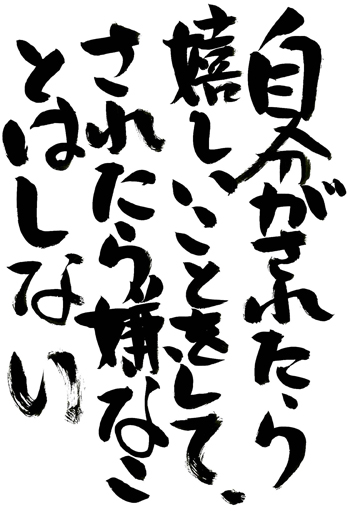 自分がされたら
嬉しいことをして、
されたら嫌なこ
とはしない